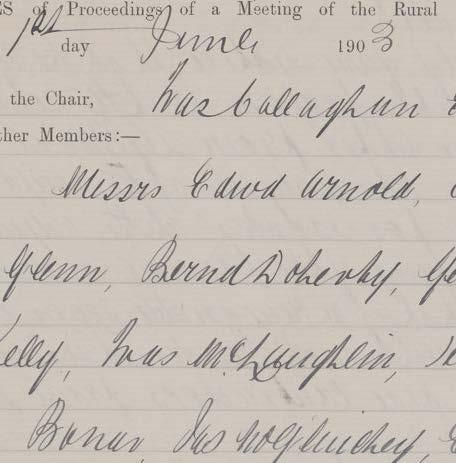 ES of Proceedings of a Meeting of the Rural
1st day June 1903
the Chair, Callaghan
ther Members:—
Messrs Edwd Arnold,
Glenn, Bernd Doherty, Ge
Kelly, McLaughlin,
Bonar, Jas McGlinchey,